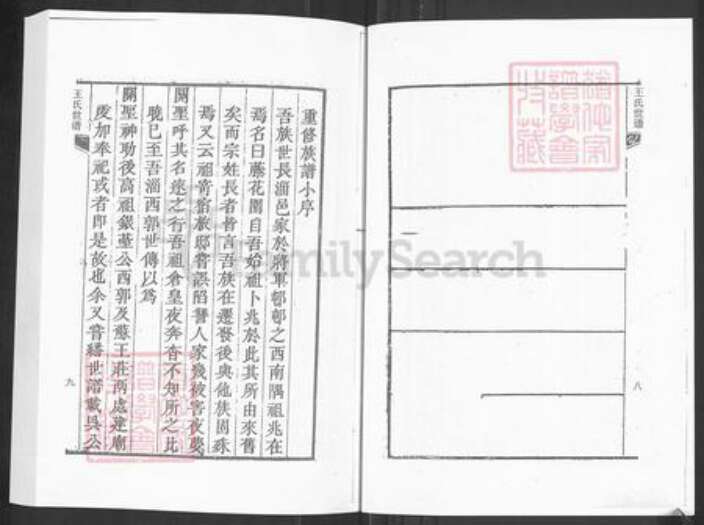 王氏世谱
八
重修族譜小序
吾族世長淄邑家於將軍邨邨之西南隅祖兆在
焉名曰藤花園自吾始祖卜兆於此其所由來舊
矣而宗姓長者皆言吾族在遷發後與他族固殊
焉又云祖嘗宿旅邸嘗誤陷讐人家幾被害夜夢
關聖呼其名速之行吾祖倉皇夜奔杳不知所之比
曉已至吾淄西郭世傳以爲
關聖神助後高祖銀臺公西郭及蘇王莊兩處建廟
虔加奉祀或者即是故也余又嘗繙世譜載吳公
王氏世谱
九
FamilySearch